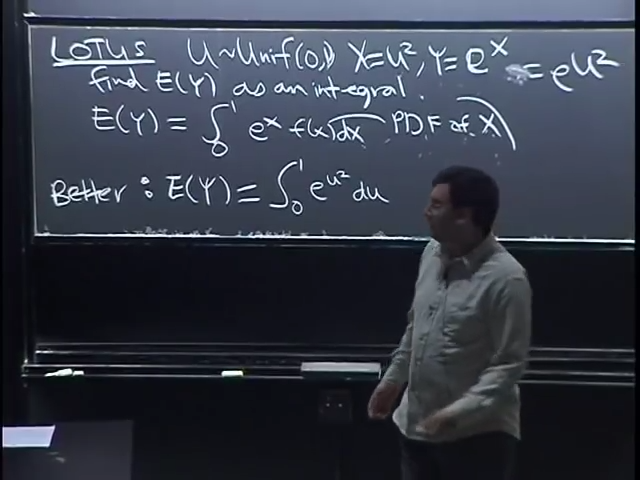 LOTUS U~Unif(0,1) X=U², Y=e^X = e^U²
find E(Y) as an integral.
E(Y) = ∫₀¹ e^x f(x)dx PDF of X
Better: E(Y) = ∫₀¹ e^u² du